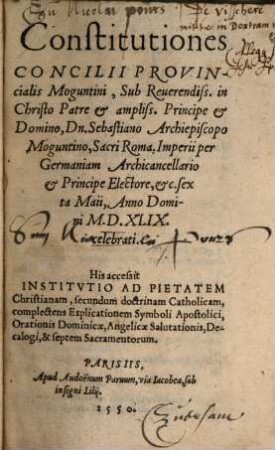 De Visschere
Constitutiones
CONCILII PROVIN-
cialis Moguntini, Sub Reuerendiss. in
Christo Patre & ampliss. Principe &
Domino, Dn. Sebastiano Archiepiscopo
Moguntino, Sacri Roma. Imperii per
Germaniam Archicancellario
& Principe Electore, &c. sex
ta Maii, Anno Domi-
ni M. D. XLIX.
celebrati.
His accessit
INSTITVTIO AD PIETATEM
Christianam, secundum doctrinam Catholicam,
complectens Explicationem Symboli Apostolici,
Orationis Dominicæ, Angelicæ Salutationis, De-
calogi, & septem Sacramentorum.
PARISIIS,
Apud Audoënum Paruum, via Iacobea, sub
insigni Lilij.
1550.